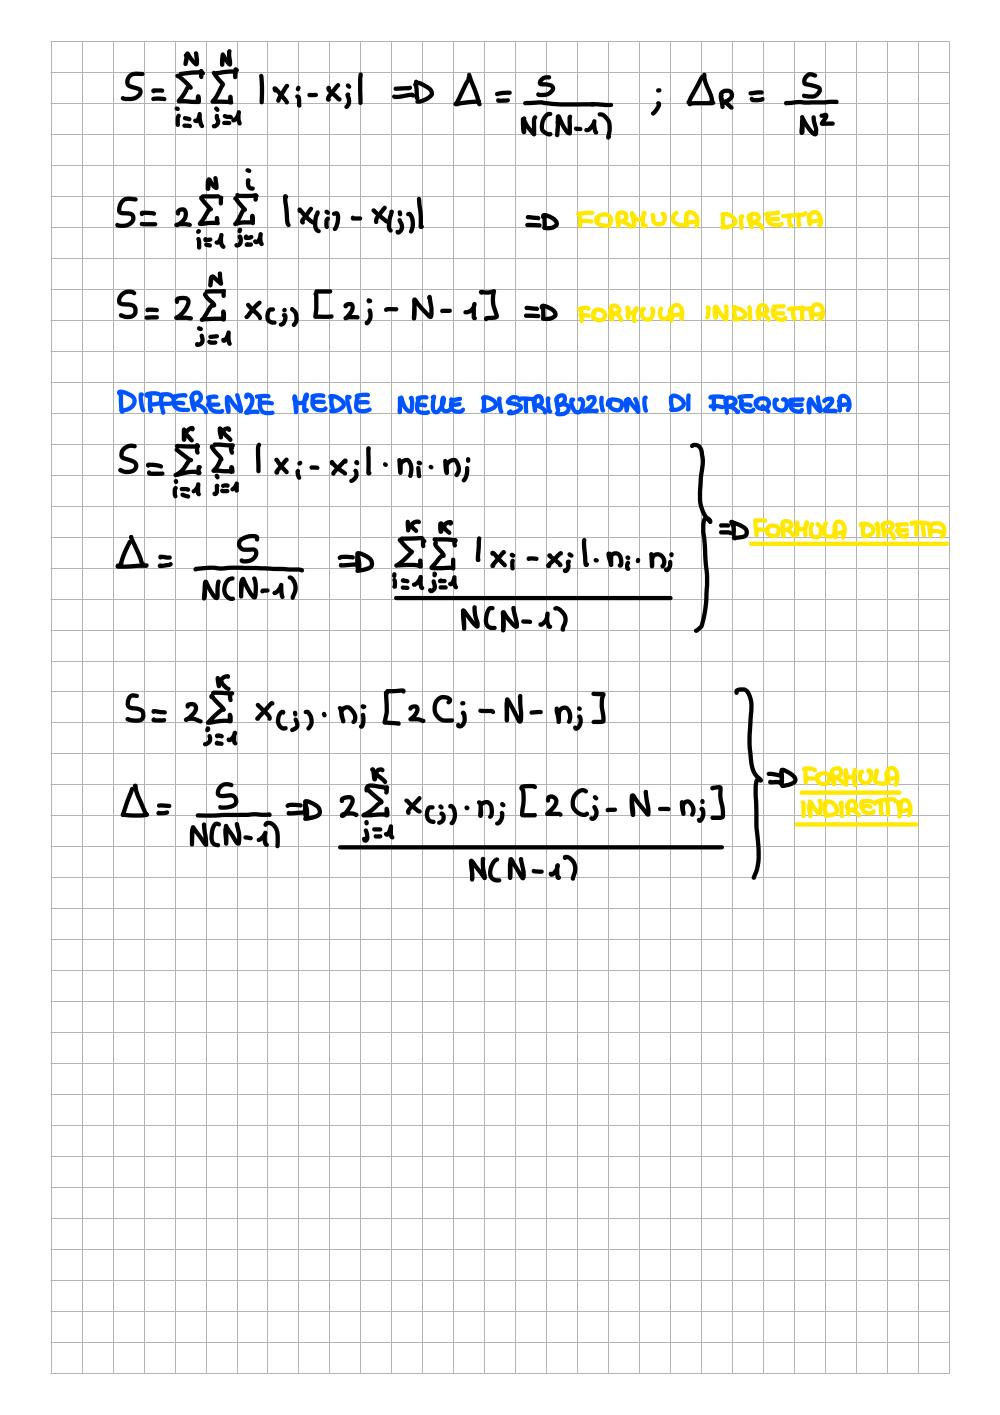 S = \sum_{i=1}^{N} \sum_{j=1}^{N} |x_i - x_j| ⇒ Δ = \frac{S}{N(N-1)} ; Δ_R = \frac{S}{N^2}
S = 2 \sum_{i=1}^{N} \sum_{j=1}^{i} |x_{(i)} - x_{(j)}| ⇒ FORMULA DIRETTA
S = 2 \sum_{j=1}^{N} x_{(j)} [2j - N - 1] ⇒ FORMULA INDIRETTA
DIFFERENZE MEDIE NELLE DISTRIBUZIONI DI FREQUENZA
S = \sum_{i=1}^{K} \sum_{j=1}^{K} |x_i - x_j| · n_i · n_j
Δ = \frac{S}{N(N-1)} ⇒ \frac{\sum_{i=1}^{K} \sum_{j=1}^{K} |x_i - x_j| · n_i · n_j}{N(N-1)}
} ⇒ FORMULA DIRETTA
S = 2 \sum_{j=1}^{K} x_{(j)} · n_j [2 C_j - N - n_j]
Δ = \frac{S}{N(N-1)} ⇒ \frac{2 \sum_{j=1}^{K} x_{(j)} · n_j [2 C_j - N - n_j]}{N(N-1)}
} ⇒ FORMULA
INDIRETTA